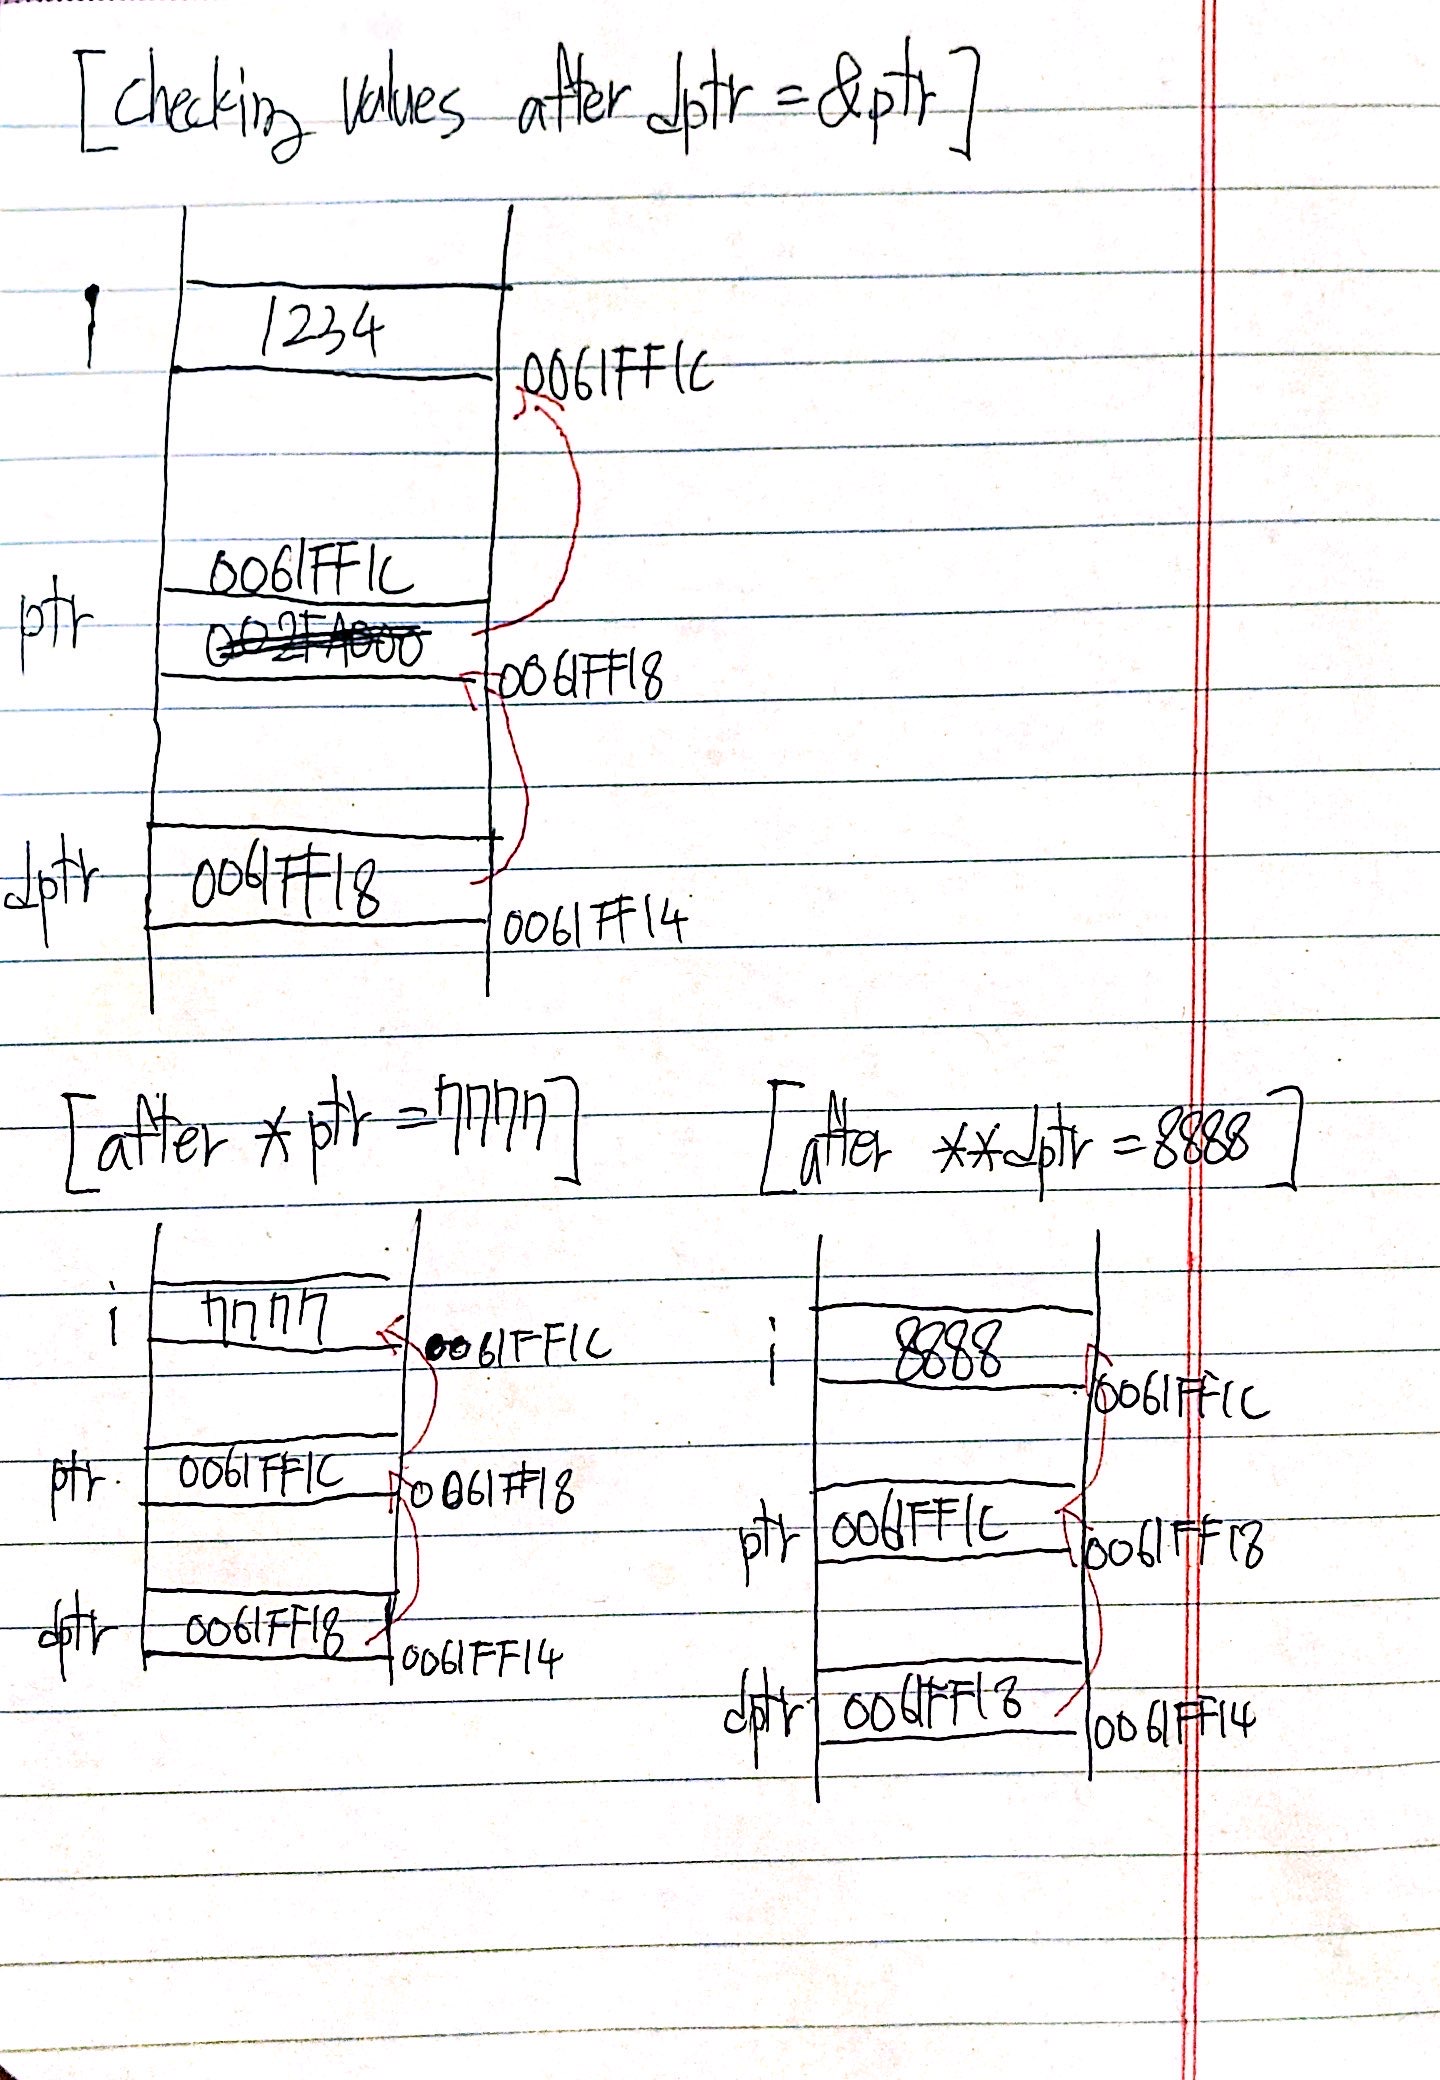 [checking values after dptr = &ptr]
i 1234
0061FF1C
0061FF1C
ptr 002FA000
0061FF18
dptr 0061FF18
0061FF14
[after *ptr = 7777]
i 7777 0061FF1C
ptr 0061FF1C 0061FF18
dptr 0061FF18 0061FF14
[after **dptr = 8888]
i 8888 0061FF1C
ptr 0061FF1C 0061FF18
dptr 0061FF18 0061FF14